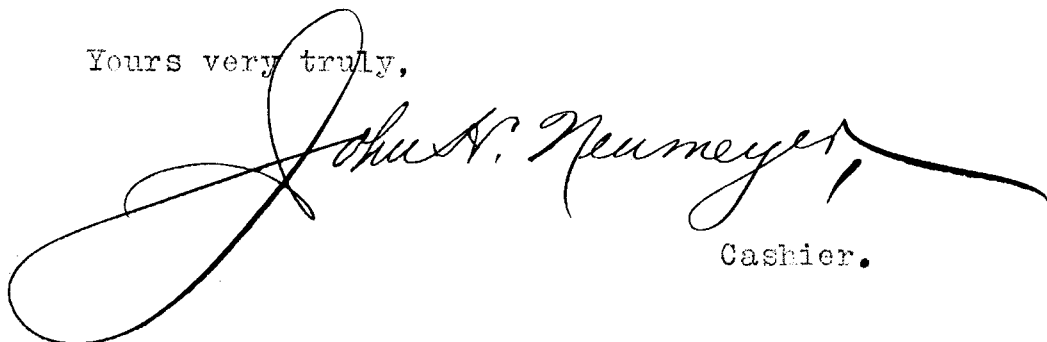 Yours very truly,
John H. Neumeyer,
Cashier.